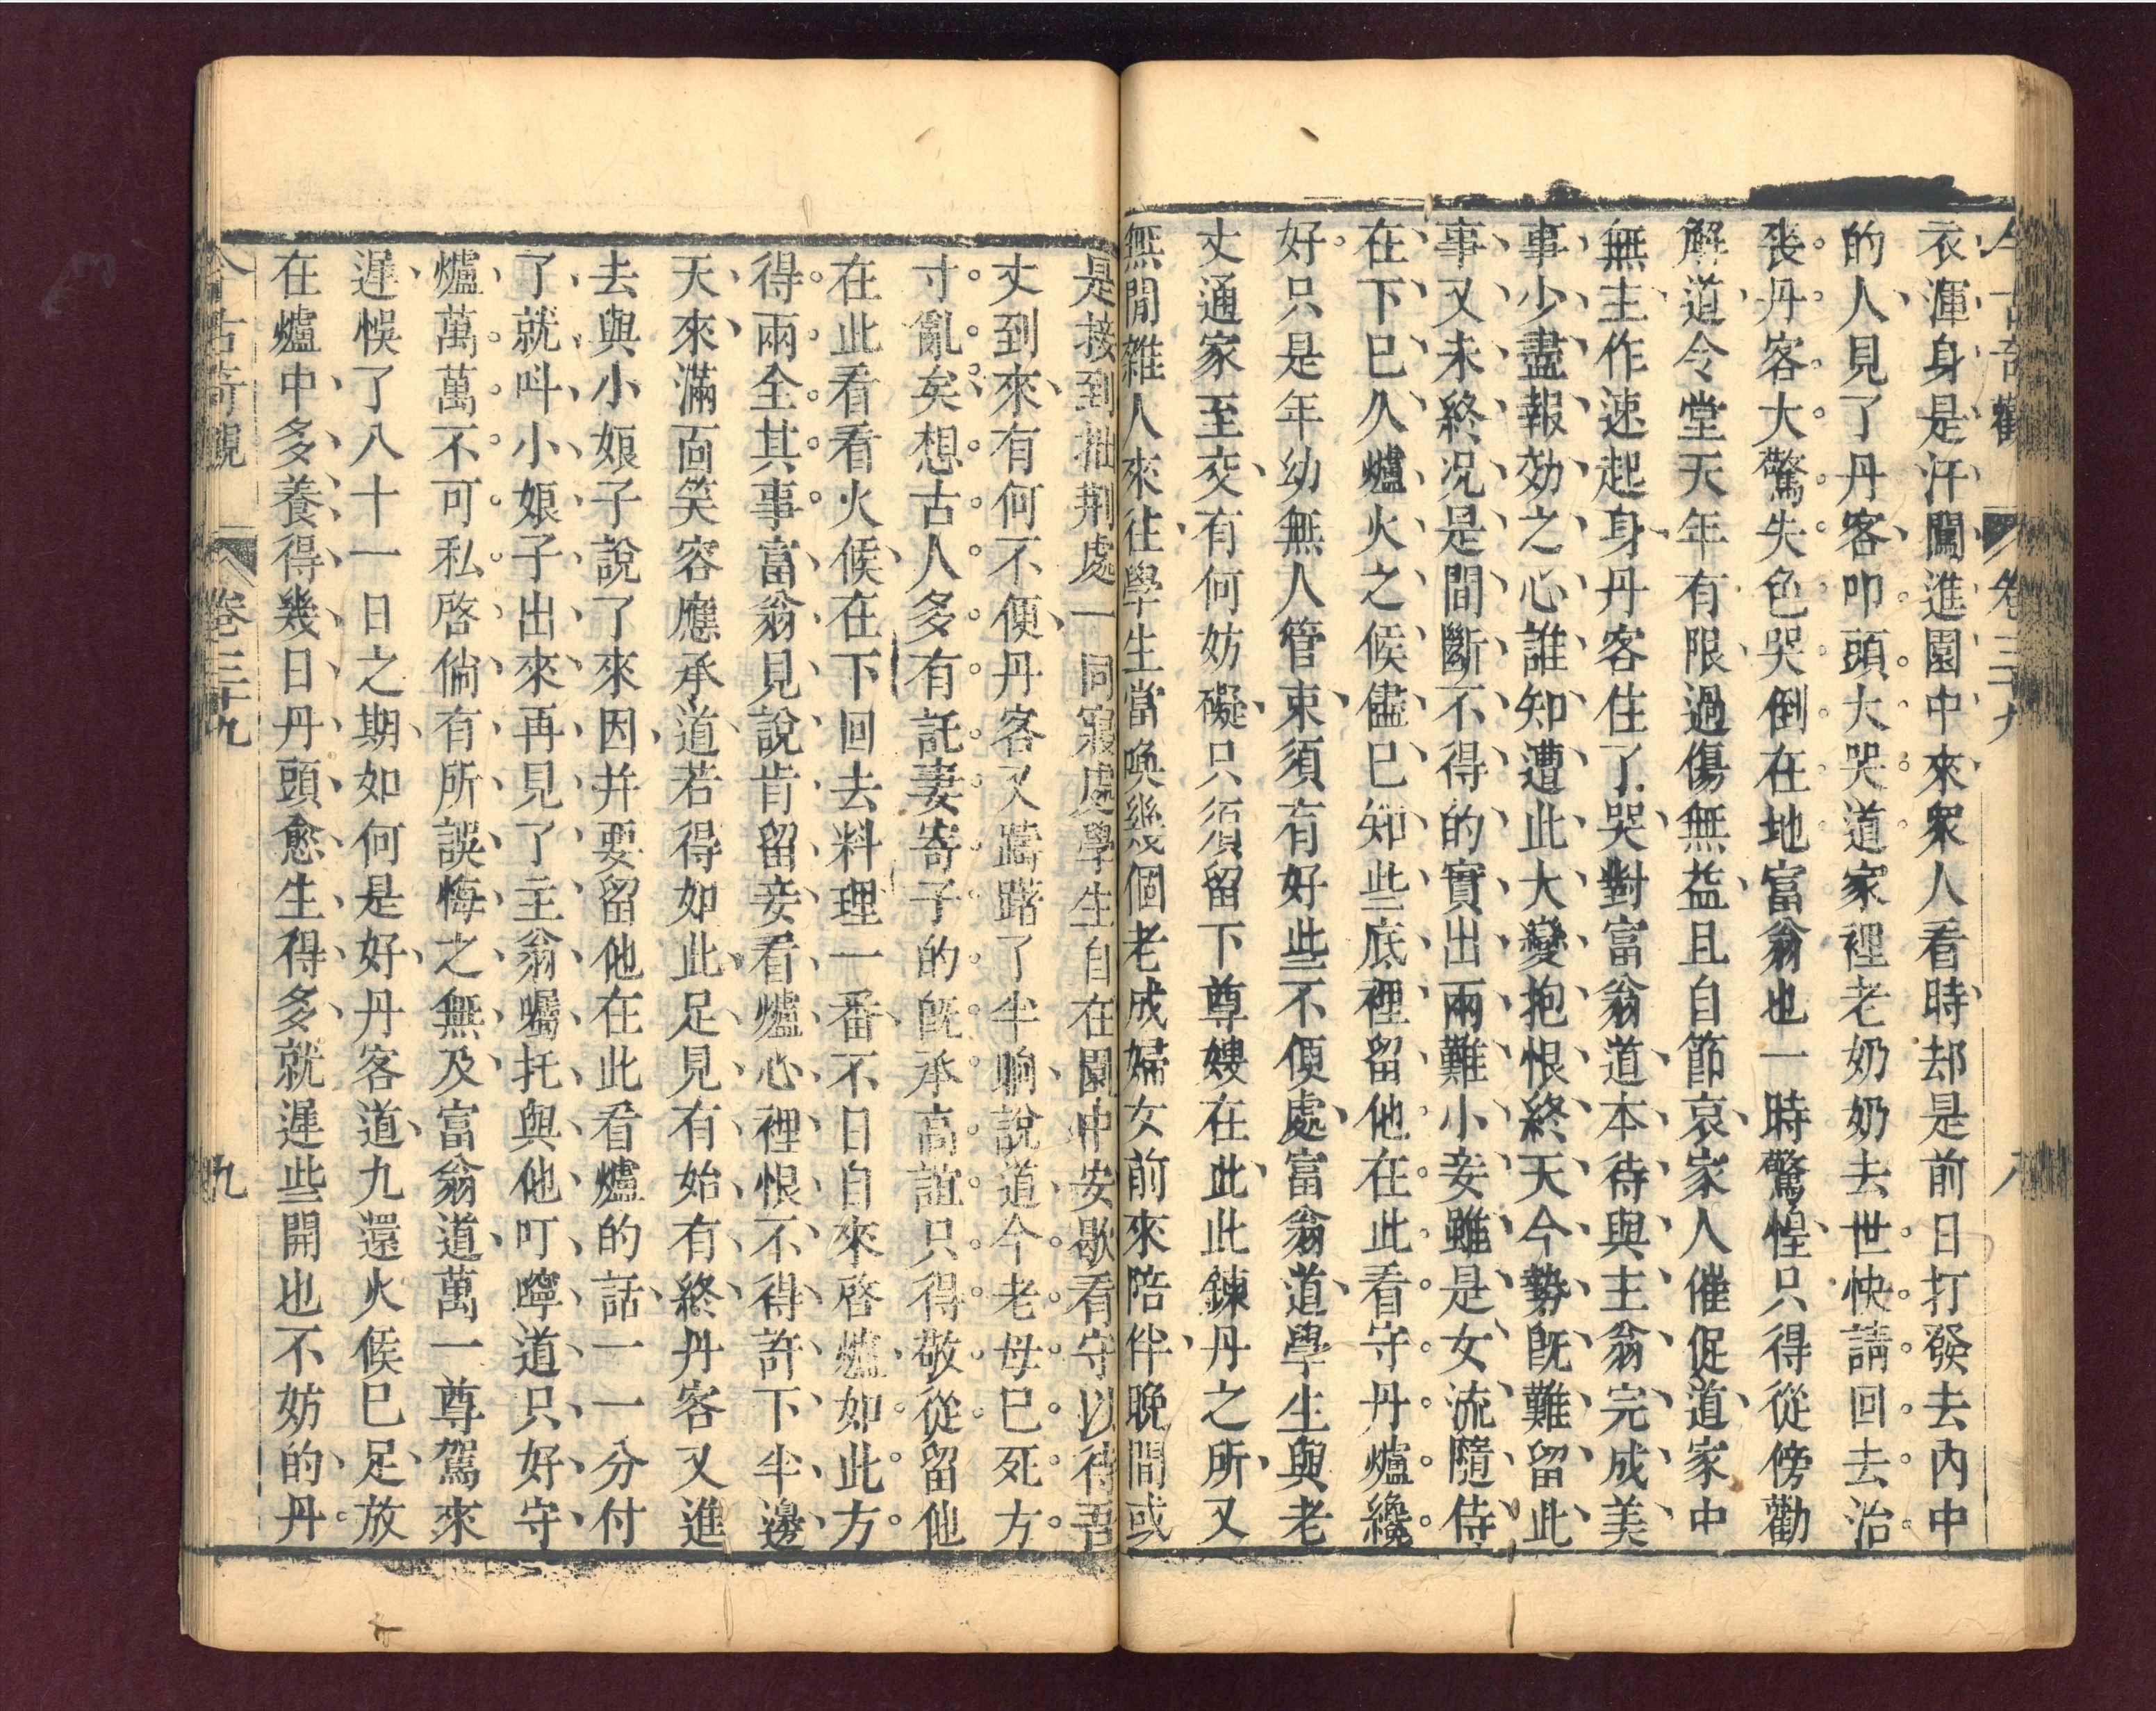 今古奇觀 卷三十九 八
衣渾身是汗闖進園中來衆人看時却是前日打發去內中
的人見了丹客叩頭大哭道家裡老奶奶去世快請回去治
喪丹客大驚失色哭倒在地富翁也一時驚惶只得從傍勸
解道令堂天年有限過傷無益且自節哀家人催促道家中
無主作速起身丹客住了哭對富翁道本待與主翁完成美
事少盡報効之心誰知遭此大變抱恨終天今勢旣難留此
事又未終况是間斷不得的實出兩難小妾雖是女流隨侍
在下已久爐火之候儘已知些底裡留他在此看守丹爐纔
好只是年幼無人管束須有好些不便處富翁道學生與老
丈通家至交有何妨礙只須留下尊嫂在此此鍊丹之所又
無閒雜人來往學生當喚幾個老成婦女前來陪伴晚間或
是接到拙荆處一同寢處學生自在園中安歇看守以待吾
丈到來有何不便丹客又躊躇了半晌說道今老母已死方
寸亂矣想古人多有託妻寄子的旣承高誼只得敬從留他
在此看看火候在下回去料理一番不日自來啓爐如此方
得兩全其事富翁見說肯留妾看爐心裡恨不得許下半邊
天來滿面笑容應承道若得如此足見有始有終丹客又進
去與小娘子說了來因并要留他在此看爐的話一一分付
了就呌小娘子出來再見了主翁囑托與他叮嚀道只好守
爐萬萬不可私啓倘有所誤悔之無及富翁道萬一尊駕來
遲悞了八十一日之期如何是好丹客道九還火候已足放
在爐中多養得幾日丹頭愈生得多就遲些開也不妨的丹
今古奇觀 卷三十九 九